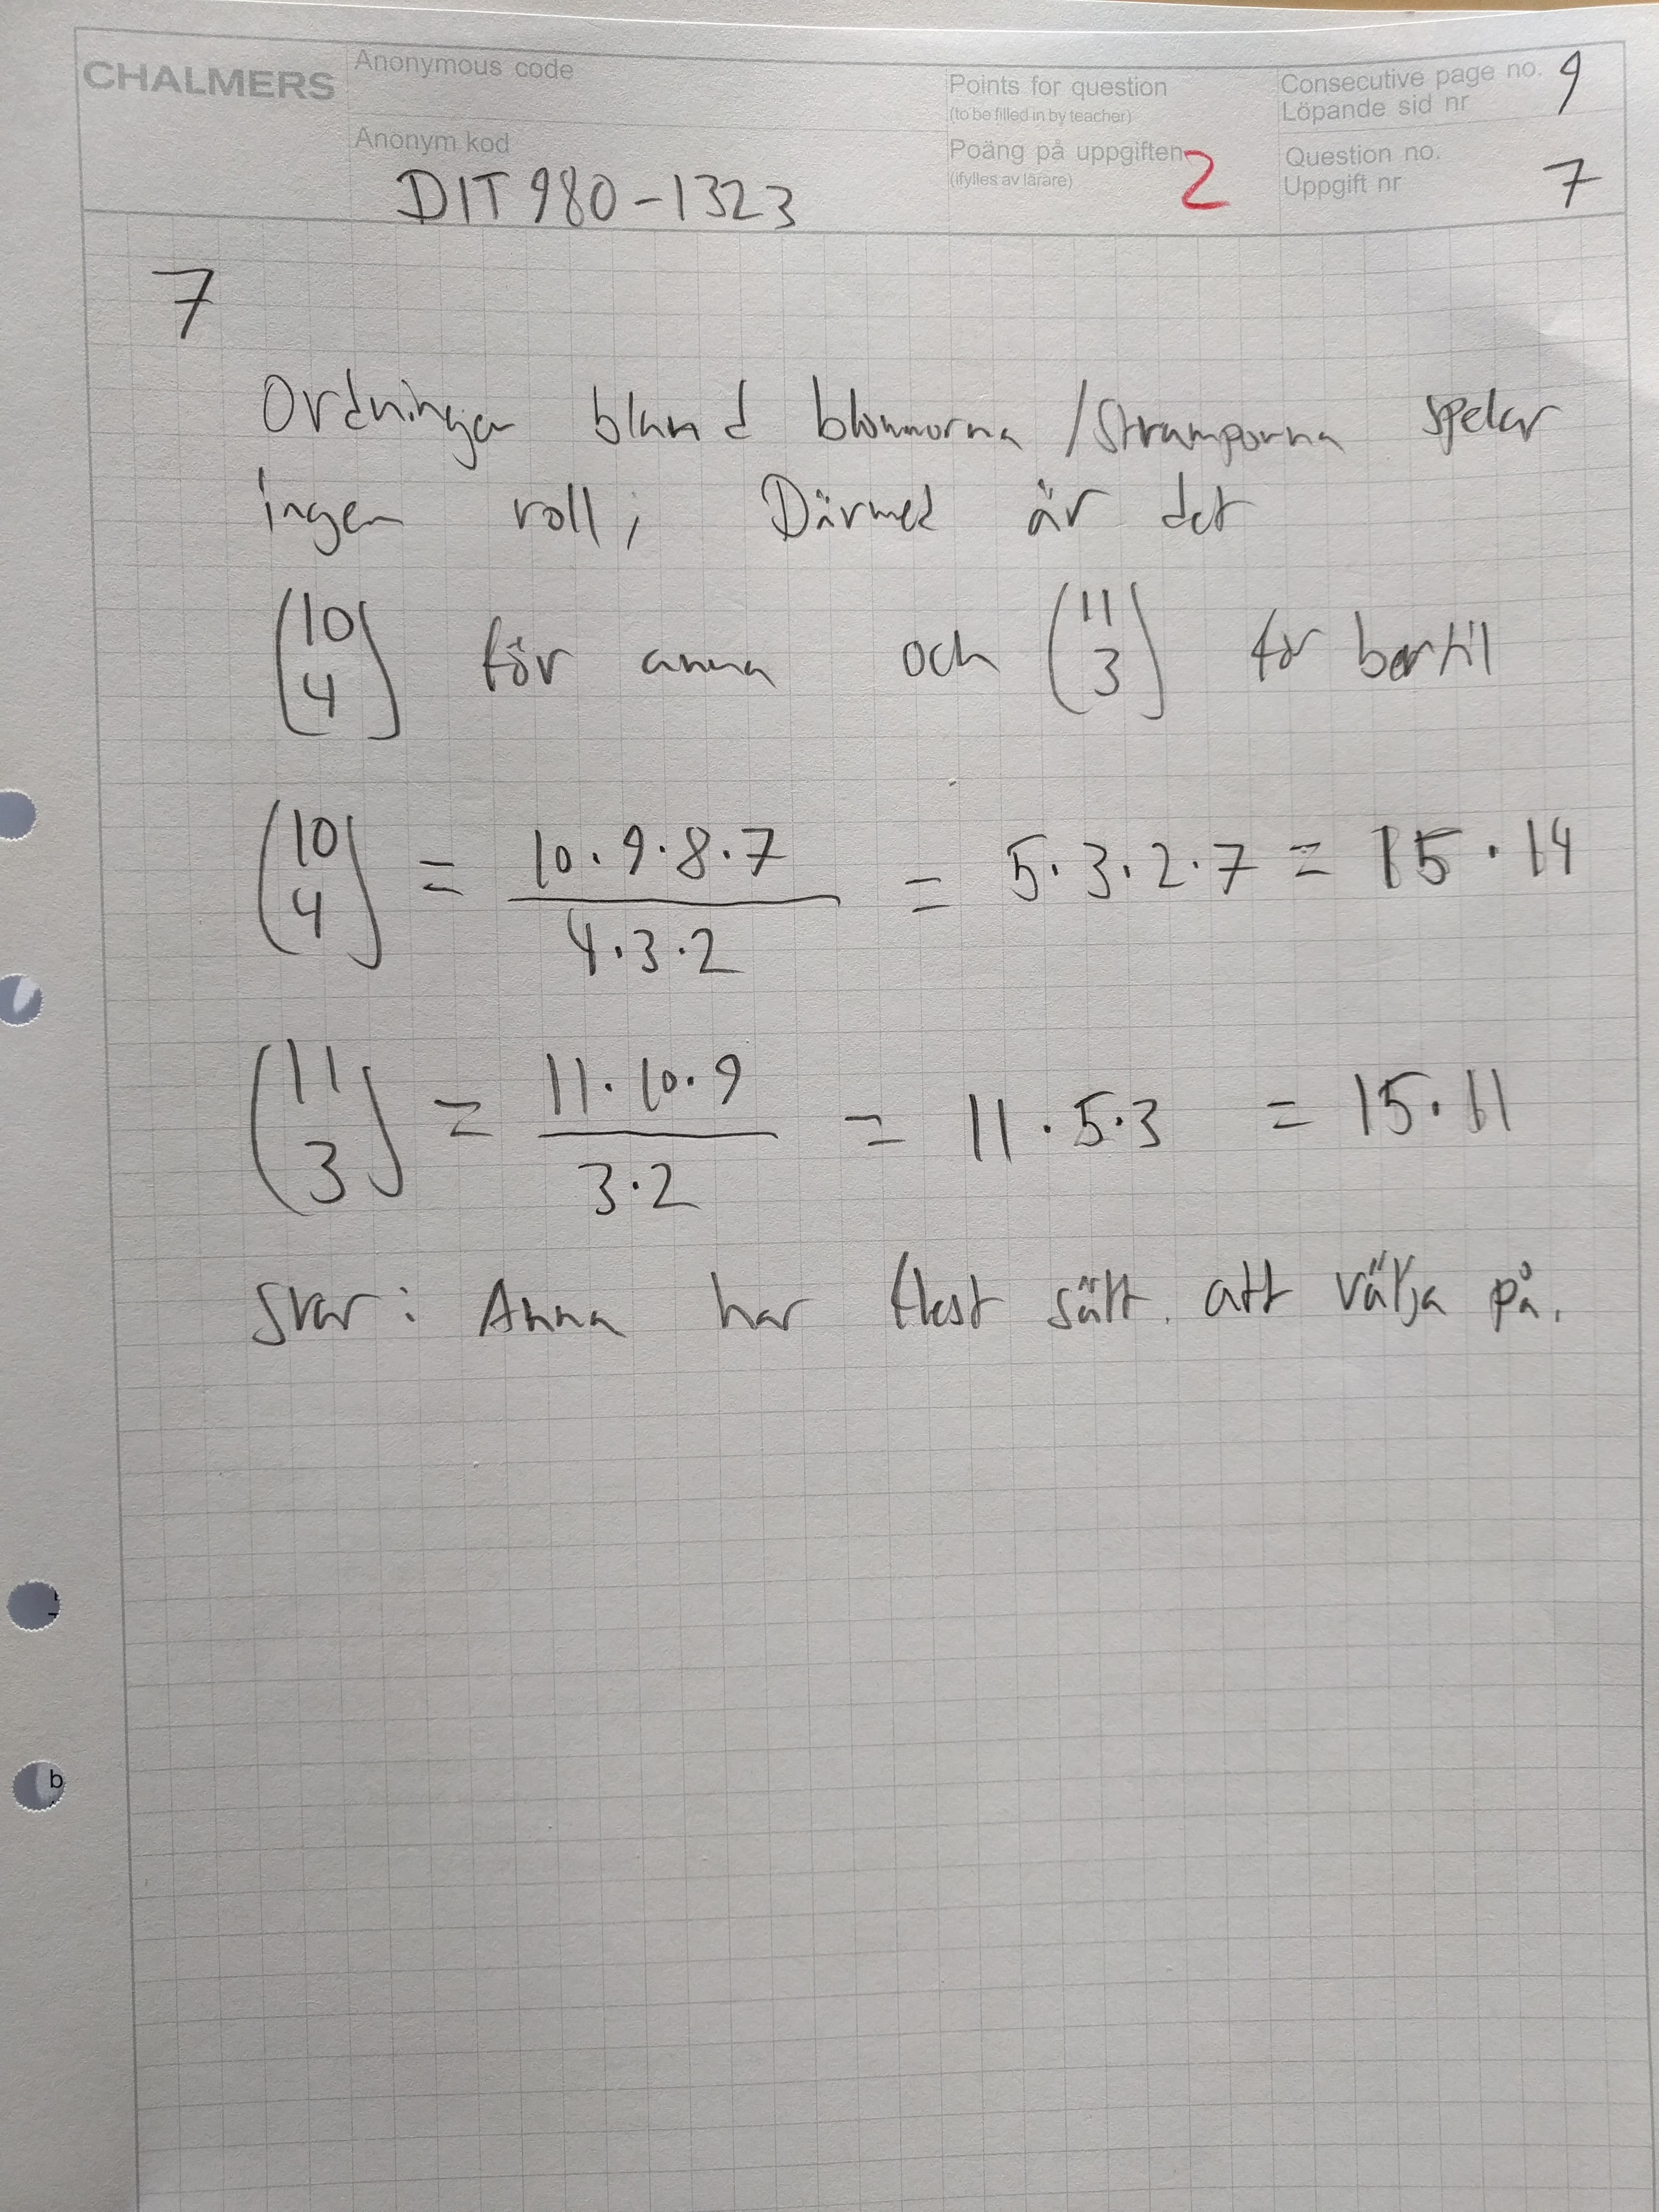 CHALMERS
Anonymous code
Anonym kod
DIT980-1323
Points for question
(to be filled in by teacher)
Poäng på uppgiften
(ifylles av lärare)
2
Consecutive page no.
Löpande sid nr
9
Question no.
Uppgift nr
7
7
Ordningen bland blommorna /strumporna spelar
ingen roll; Därmed är det
(10 4) för anna och (11 3) för bertil
(10 4) = 10·9·8·7 / 4·3·2 = 5·3·2·7 = 15·14
(11 3) = 11·10·9 / 3·2 = 11·5·3 = 15·11
Svar: Anna har flest sätt. att välja på.
b